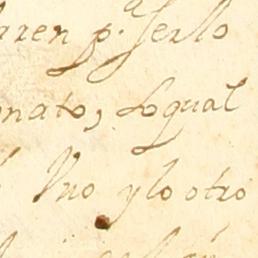 rren p.ª serlo
nato, Loqual
Vno ylo otro